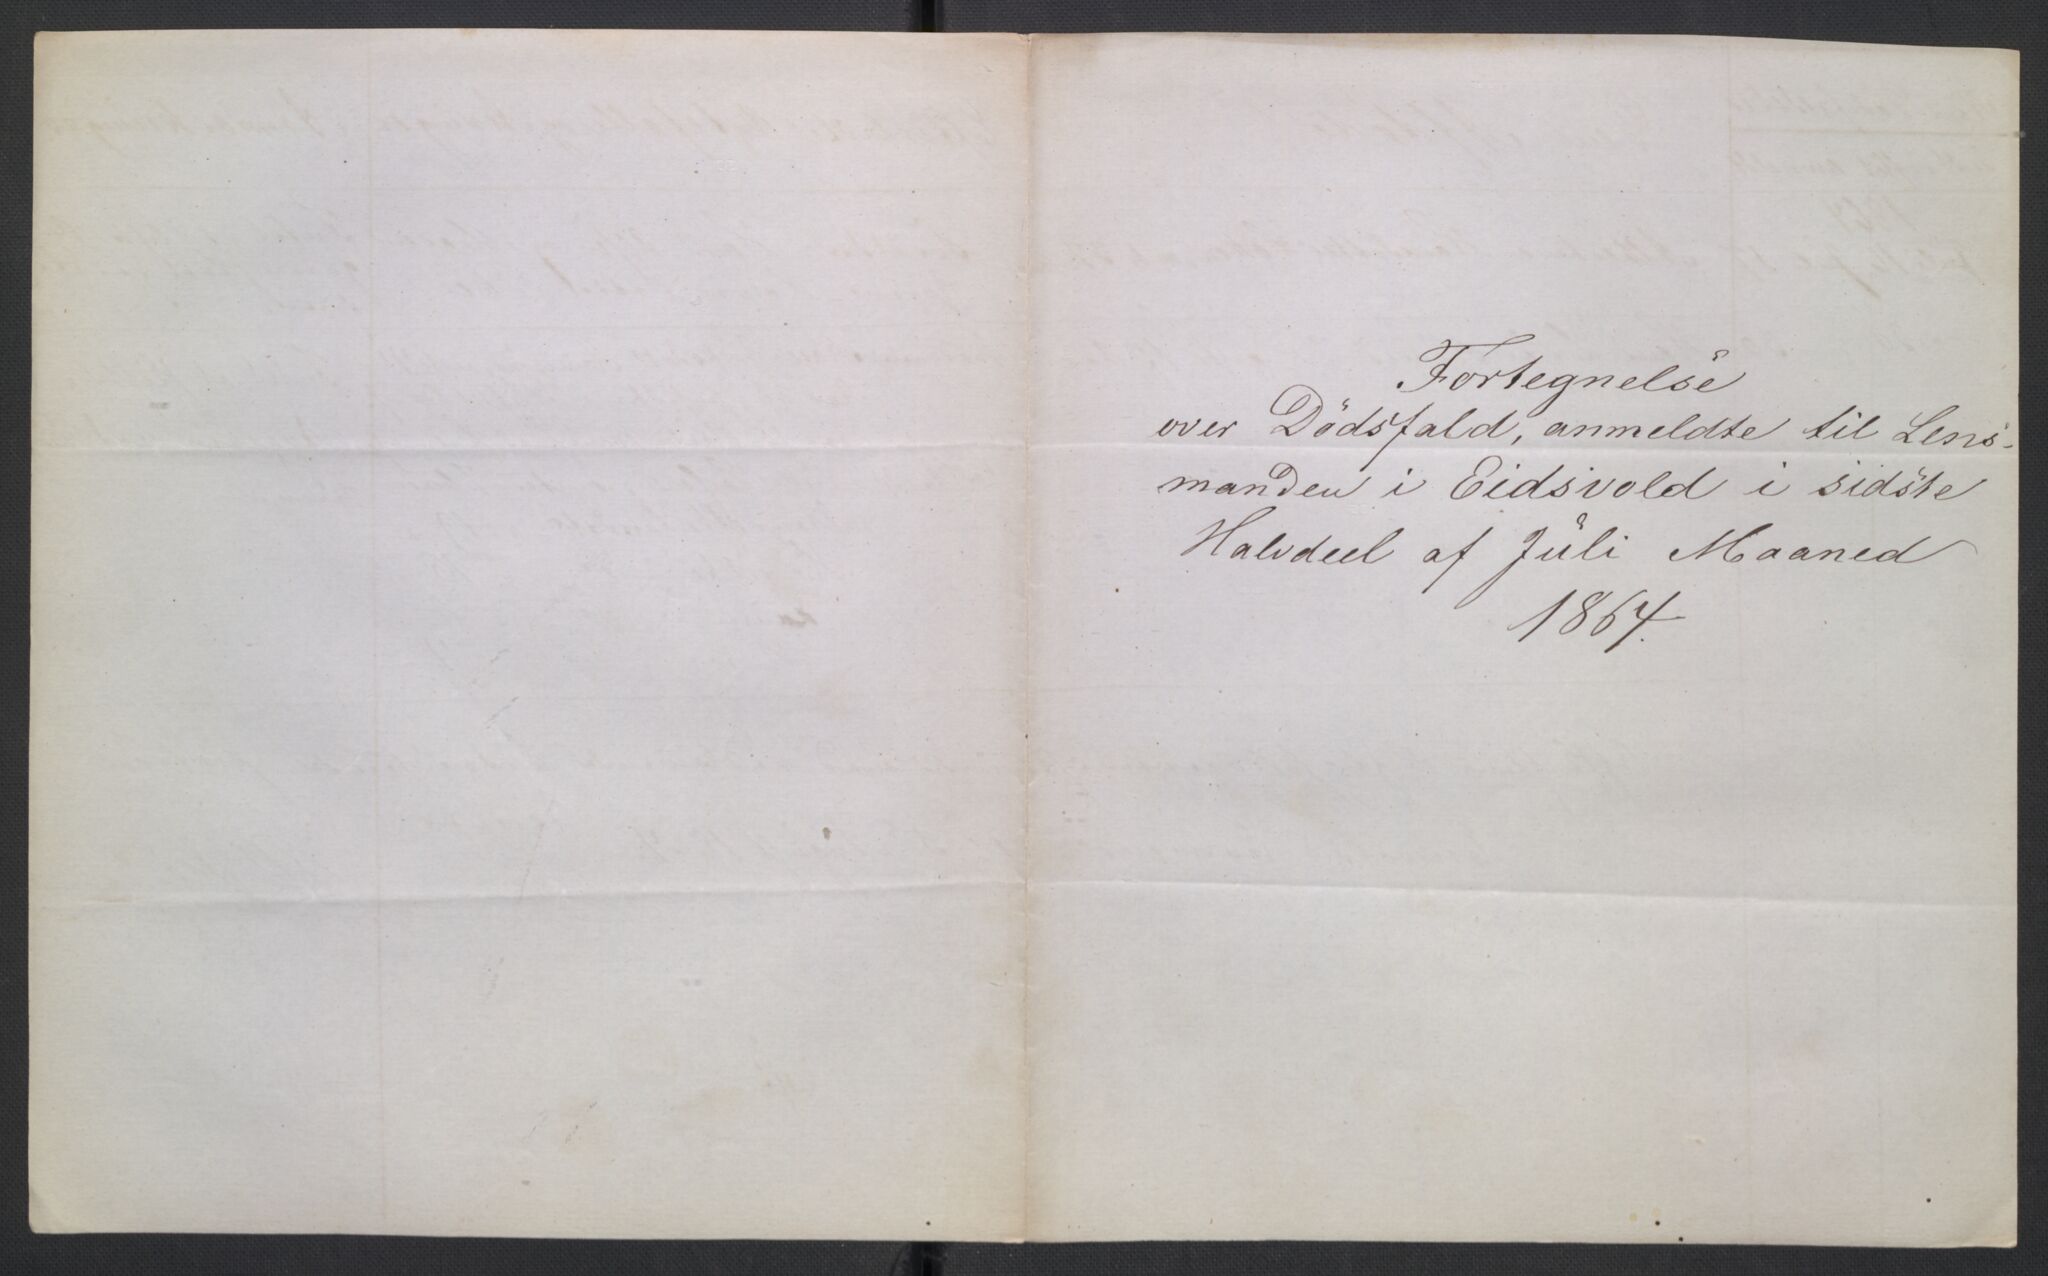 Fortegnelse
over Dödsfald, anmeldte til Lens-
manden i Eidsvold i sidste
Halvdeel af Juli Maaned
1864.